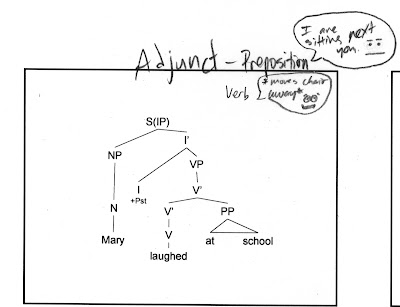 I are
sitting next
you.
Adjunct - Preposition
Verb
*moves chair
away*
S(IP)
I'
NP
VP
I
+Pst
V'
N
V'
PP
Mary
V
at
school
laughed